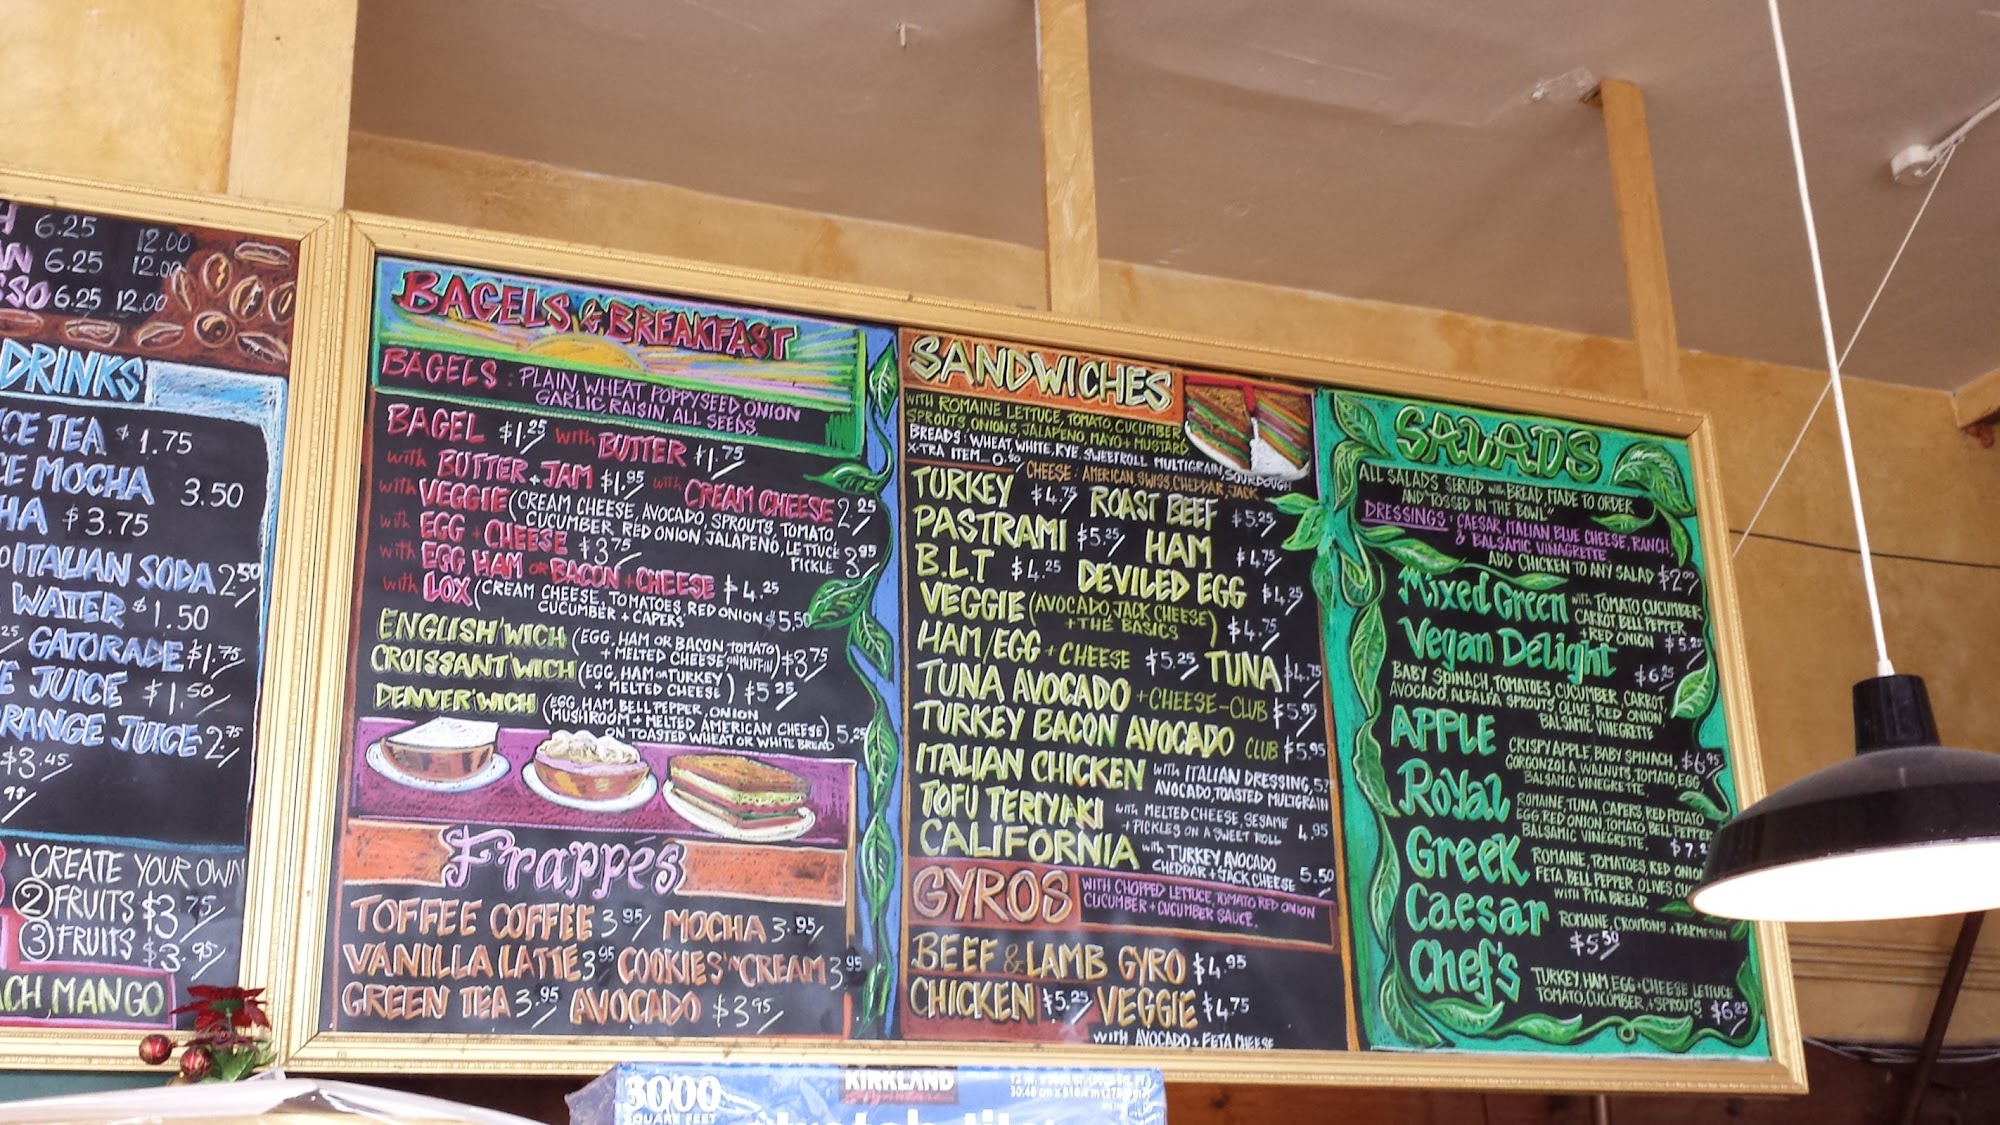 6.25 12.00
6.25 12.00
6.25 12.00
DRINKS
TEA $1.75
MOCHA 3.50
$3.75
ITALIAN SODA 2.50/
WATER $1.50
GATORADE $1.75
JUICE $1.50/
JUICE 2.75
$3.45/
"CREATE YOUR OWN
2 FRUITS $3.75/
3 FRUITS $3.95/
MANGO
BAGELS & BREAKFAST
BAGELS : PLAIN, WHEAT POPPYSEED ONION
GARLIC, RAISIN, ALL SEEDS
BAGEL $1.25 with BUTTER $1.75
with BUTTER + JAM $1.95 with CREAM CHEESE 2.25
with VEGGIE (CREAM CHEESE, AVOCADO, SPROUTS, TOMATO,
CUCUMBER RED ONION, JALAPENO, LETTUCE
PICKLE 3.95
with EGG + CHEESE $3.75
with EGG HAM OR BACON + CHEESE $4.25
with LOX (CREAM CHEESE, TOMATOES, RED ONION $5.50
CUCUMBER + CAPERS
ENGLISH'WICH (EGG, HAM OR BACON TOMATO
+ MELTED CHEESE ON MUFFIN) $3.75
CROISSANT WICH (EGG, HAM OR TURKEY
+ MELTED CHEESE) $5.25
DENVER'WICH (EGG, HAM, BELL PEPPER, ONION
MUSHROOM + MELTED AMERICAN CHEESE)
ON TOASTED WHEAT OR WHITE BREAD 5.25
Frappés
TOFFEE COFFEE 3.95/ MOCHA 3.95/
VANILLA LATTE 3.95 COOKIES'N'CREAM 3.95
GREEN TEA 3.95 AVOCADO $3.95/
SANDWICHES
WITH ROMAINE LETTUCE, TOMATO, CUCUMBER
SPROUTS, ONIONS, JALAPENO, MAYO + MUSTARD
BREADS : WHEAT, WHITE, RYE, SWEETROLL MULTIGRAIN, SOURDOUGH
X-TRA ITEM_0.50 CHEESE : AMERICAN, SWISS, CHEDDAR, JACK
TURKEY $4.75 ROAST BEEF $5.25
PASTRAMI $5.25 HAM $4.75
B.L.T $4.25 DEVILED EGG $4.25
VEGGIE (AVOCADO, JACK CHEESE
+ THE BASICS) $4.75
HAM/EGG + CHEESE $5.25 TUNA $4.75
TUNA AVOCADO + CHEESE - CLUB $5.95
TURKEY BACON AVOCADO CLUB $5.95
ITALIAN CHICKEN with ITALIAN DRESSING,
AVOCADO, TOASTED MULTIGRAIN
TOFU TERIYAKI with MELTED CHEESE, SESAME
+ PICKLES ON A SWEET ROLL 4.95
CALIFORNIA with TURKEY, AVOCADO
CHEDDAR + JACK CHEESE 5.50
GYROS WITH CHOPPED LETTUCE, TOMATO RED ONION
CUCUMBER + CUCUMBER SAUCE.
BEEF & LAMB GYRO $4.95
CHICKEN $5.25 VEGGIE $4.75
WITH AVOCADO + FETA CHEESE
SALADS
ALL SALADS SERVED with BREAD, MADE TO ORDER
AND "TOSSED IN THE BOWL"
DRESSINGS : CAESAR, ITALIAN BLUE CHEESE, RANCH,
& BALSAMIC VINAGRETTE
ADD CHICKEN TO ANY SALAD $2.00
Mixed Green with TOMATO, CUCUMBER
CARROT BELL PEPPER
+ RED ONION $5.25
Vegan Delight $6.25
BABY SPINACH, TOMATOES, CUCUMBER, CARROT,
AVOCADO, ALFALFA SPROUTS, OLIVE, RED ONION,
BALSAMIC VINEGRETTE
APPLE CRISPY APPLE, BABY SPINACH, $6.95
GORGONZOLA, WALNUTS, TOMATO, EGG,
BALSAMIC VINEGRETTE.
Royal ROMAINE, TUNA, CAPERS, RED POTATO
EGG, RED ONION, TOMATO, BELL PEPPER
BALSAMIC VINEGRETTE.
Greek ROMAINE, TOMATOES, RED ONION
FETA, BELL PEPPER, OLIVES,
WITH PITA BREAD.
Caesar ROMAINE, CROUTONS + PARMESAN
$5.50
Chef's TURKEY, HAM, EGG + CHEESE LETTUCE
TOMATO, CUCUMBER, + SPROUTS $6.25
3000
SQUARE FEET
KIRKLAND